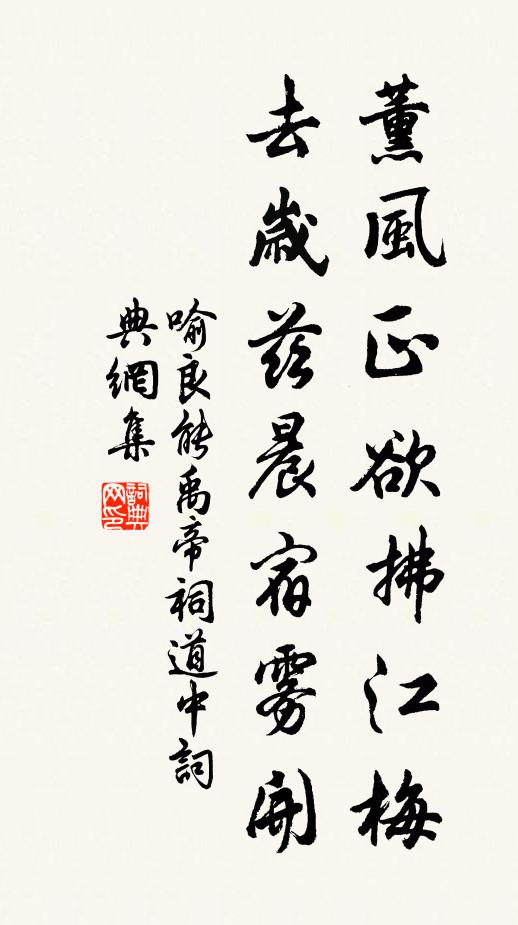 薰風正欲拂江梅
去歲茲晨宿霧開
喻良能禹帝祠道中詞
典網集
詞典
网印